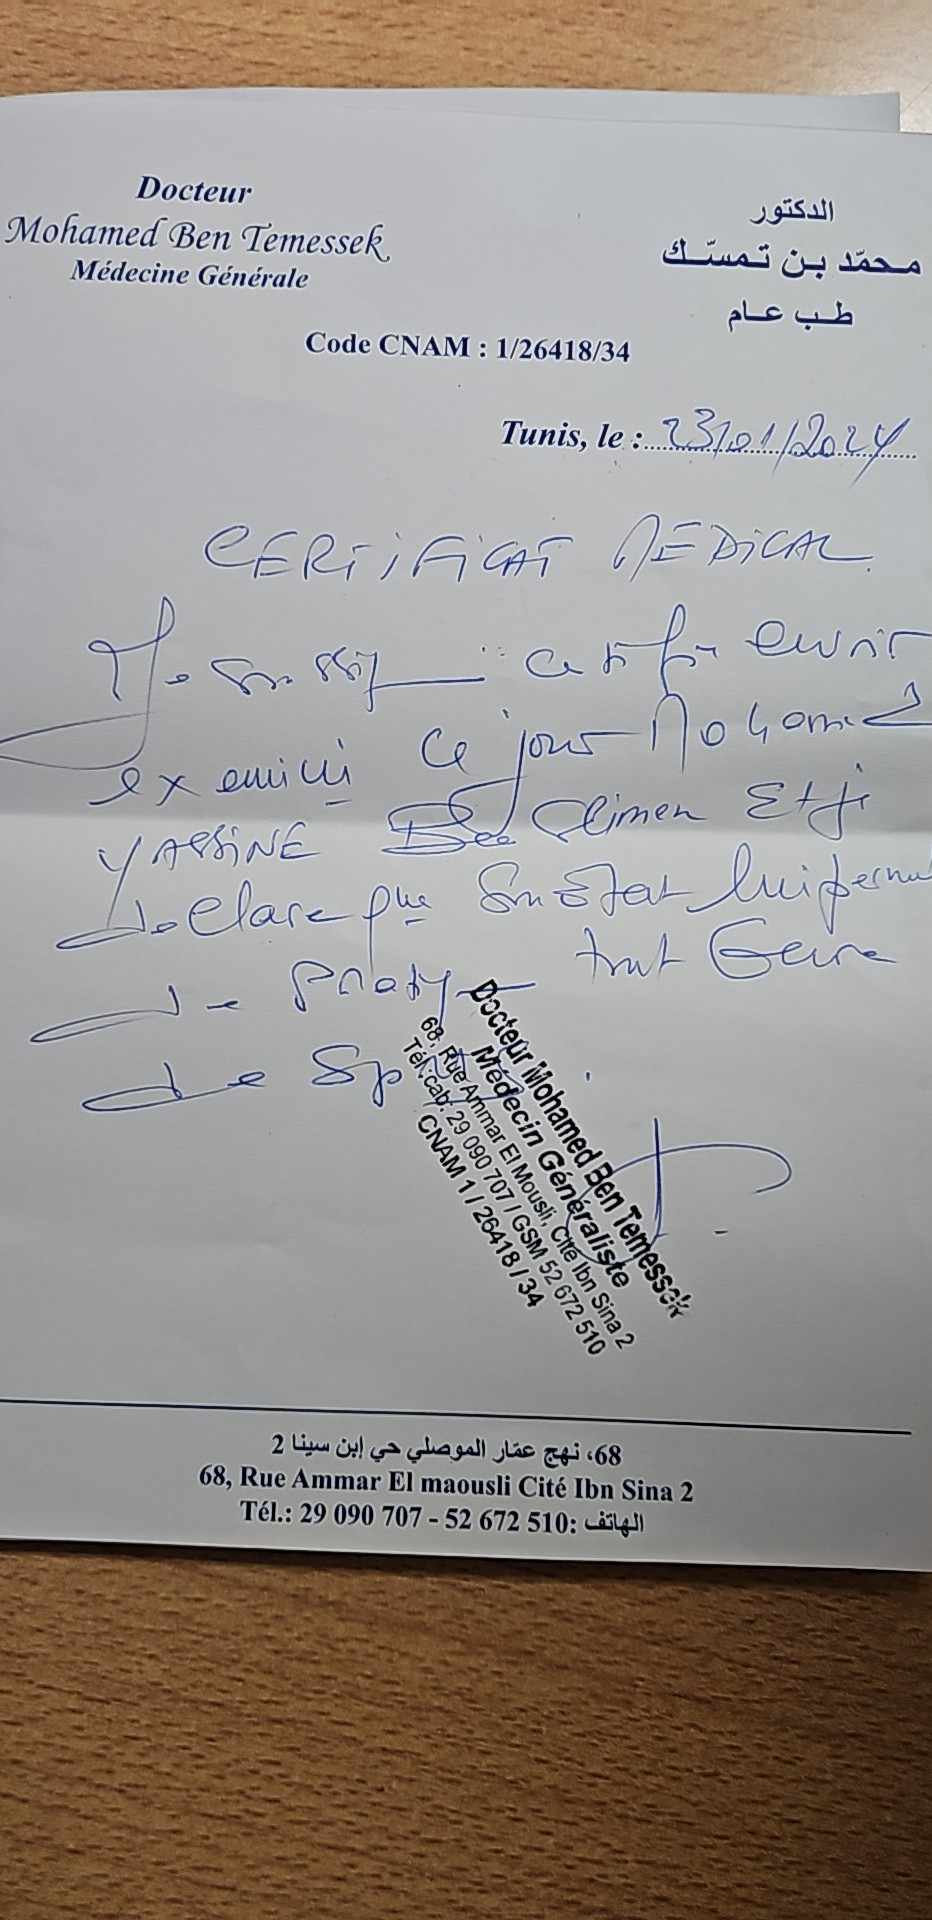 Docteur
Mohamed Ben Temessek
Médecine Générale
الدكتور
محمّد بن تمسّك
طب عام
Code CNAM : 1/26418/34
Tunis, le : 23/01/2024
CERTIFICAT MEDICAL
Je soussigné certifie avoir
examiné ce jour Mohamed
YASSINE Ben Slimen Et je
declare que son Etat lui permet
de pratiquer tout Genre
de Sport.
Docteur Mohamed Ben Temessek
Médecin Généraliste
68, Rue Ammar El Mousli, Cité Ibn Sina 2
Tél.cab: 29 090 707 / GSM 52 672 510
CNAM 1 / 26418 / 34
68، نهج عمّار الموصلي حي إبن سينا 2
68, Rue Ammar El maousli Cité Ibn Sina 2
Tél.: 29 090 707 - 52 672 510 :الهاتف